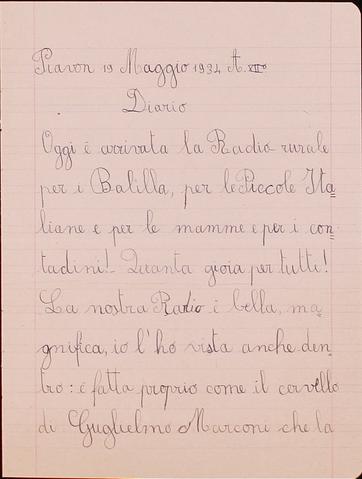 Piavon 19 Maggio 1934 A. XIIº
Diario
Oggi è arrivata la Radio rurale
per i Balilla, per le Piccole Ita=
liane e per le mamme e per i con=
tadini! Quanta gioia per tutti!
La nostra Radio è bella, ma=
gnifica, io l'ho vista anche den=
tro: è fatta proprio come il cervello
di Guglielmo Marconi che la